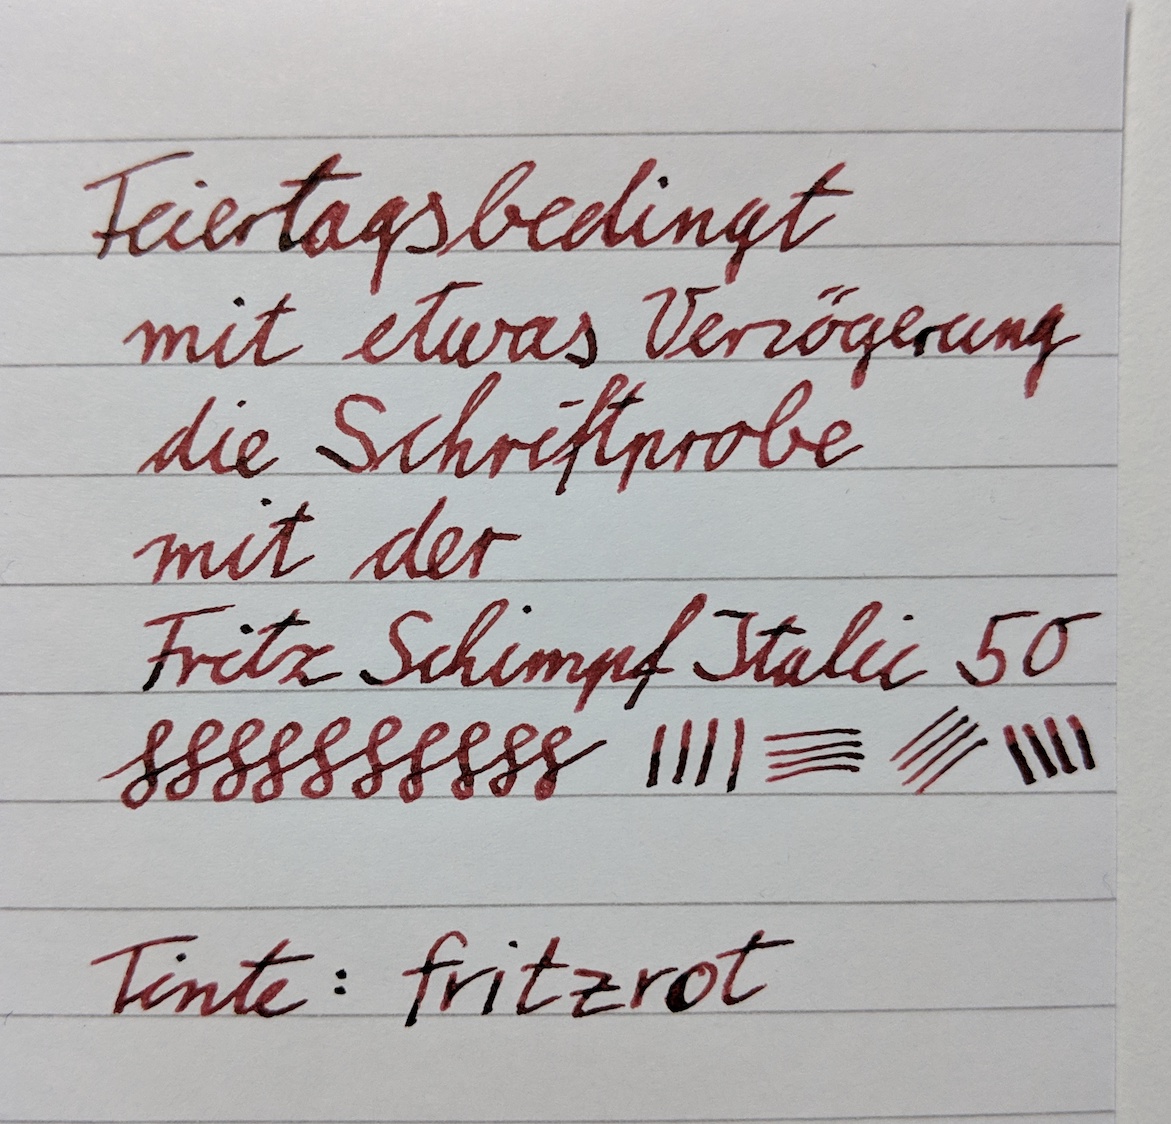 Feiertagsbedingt
mit etwas Verzögerung
die Schriftprobe
mit der
Fritz Schimpf Italic 50
Tinte: fritzrot